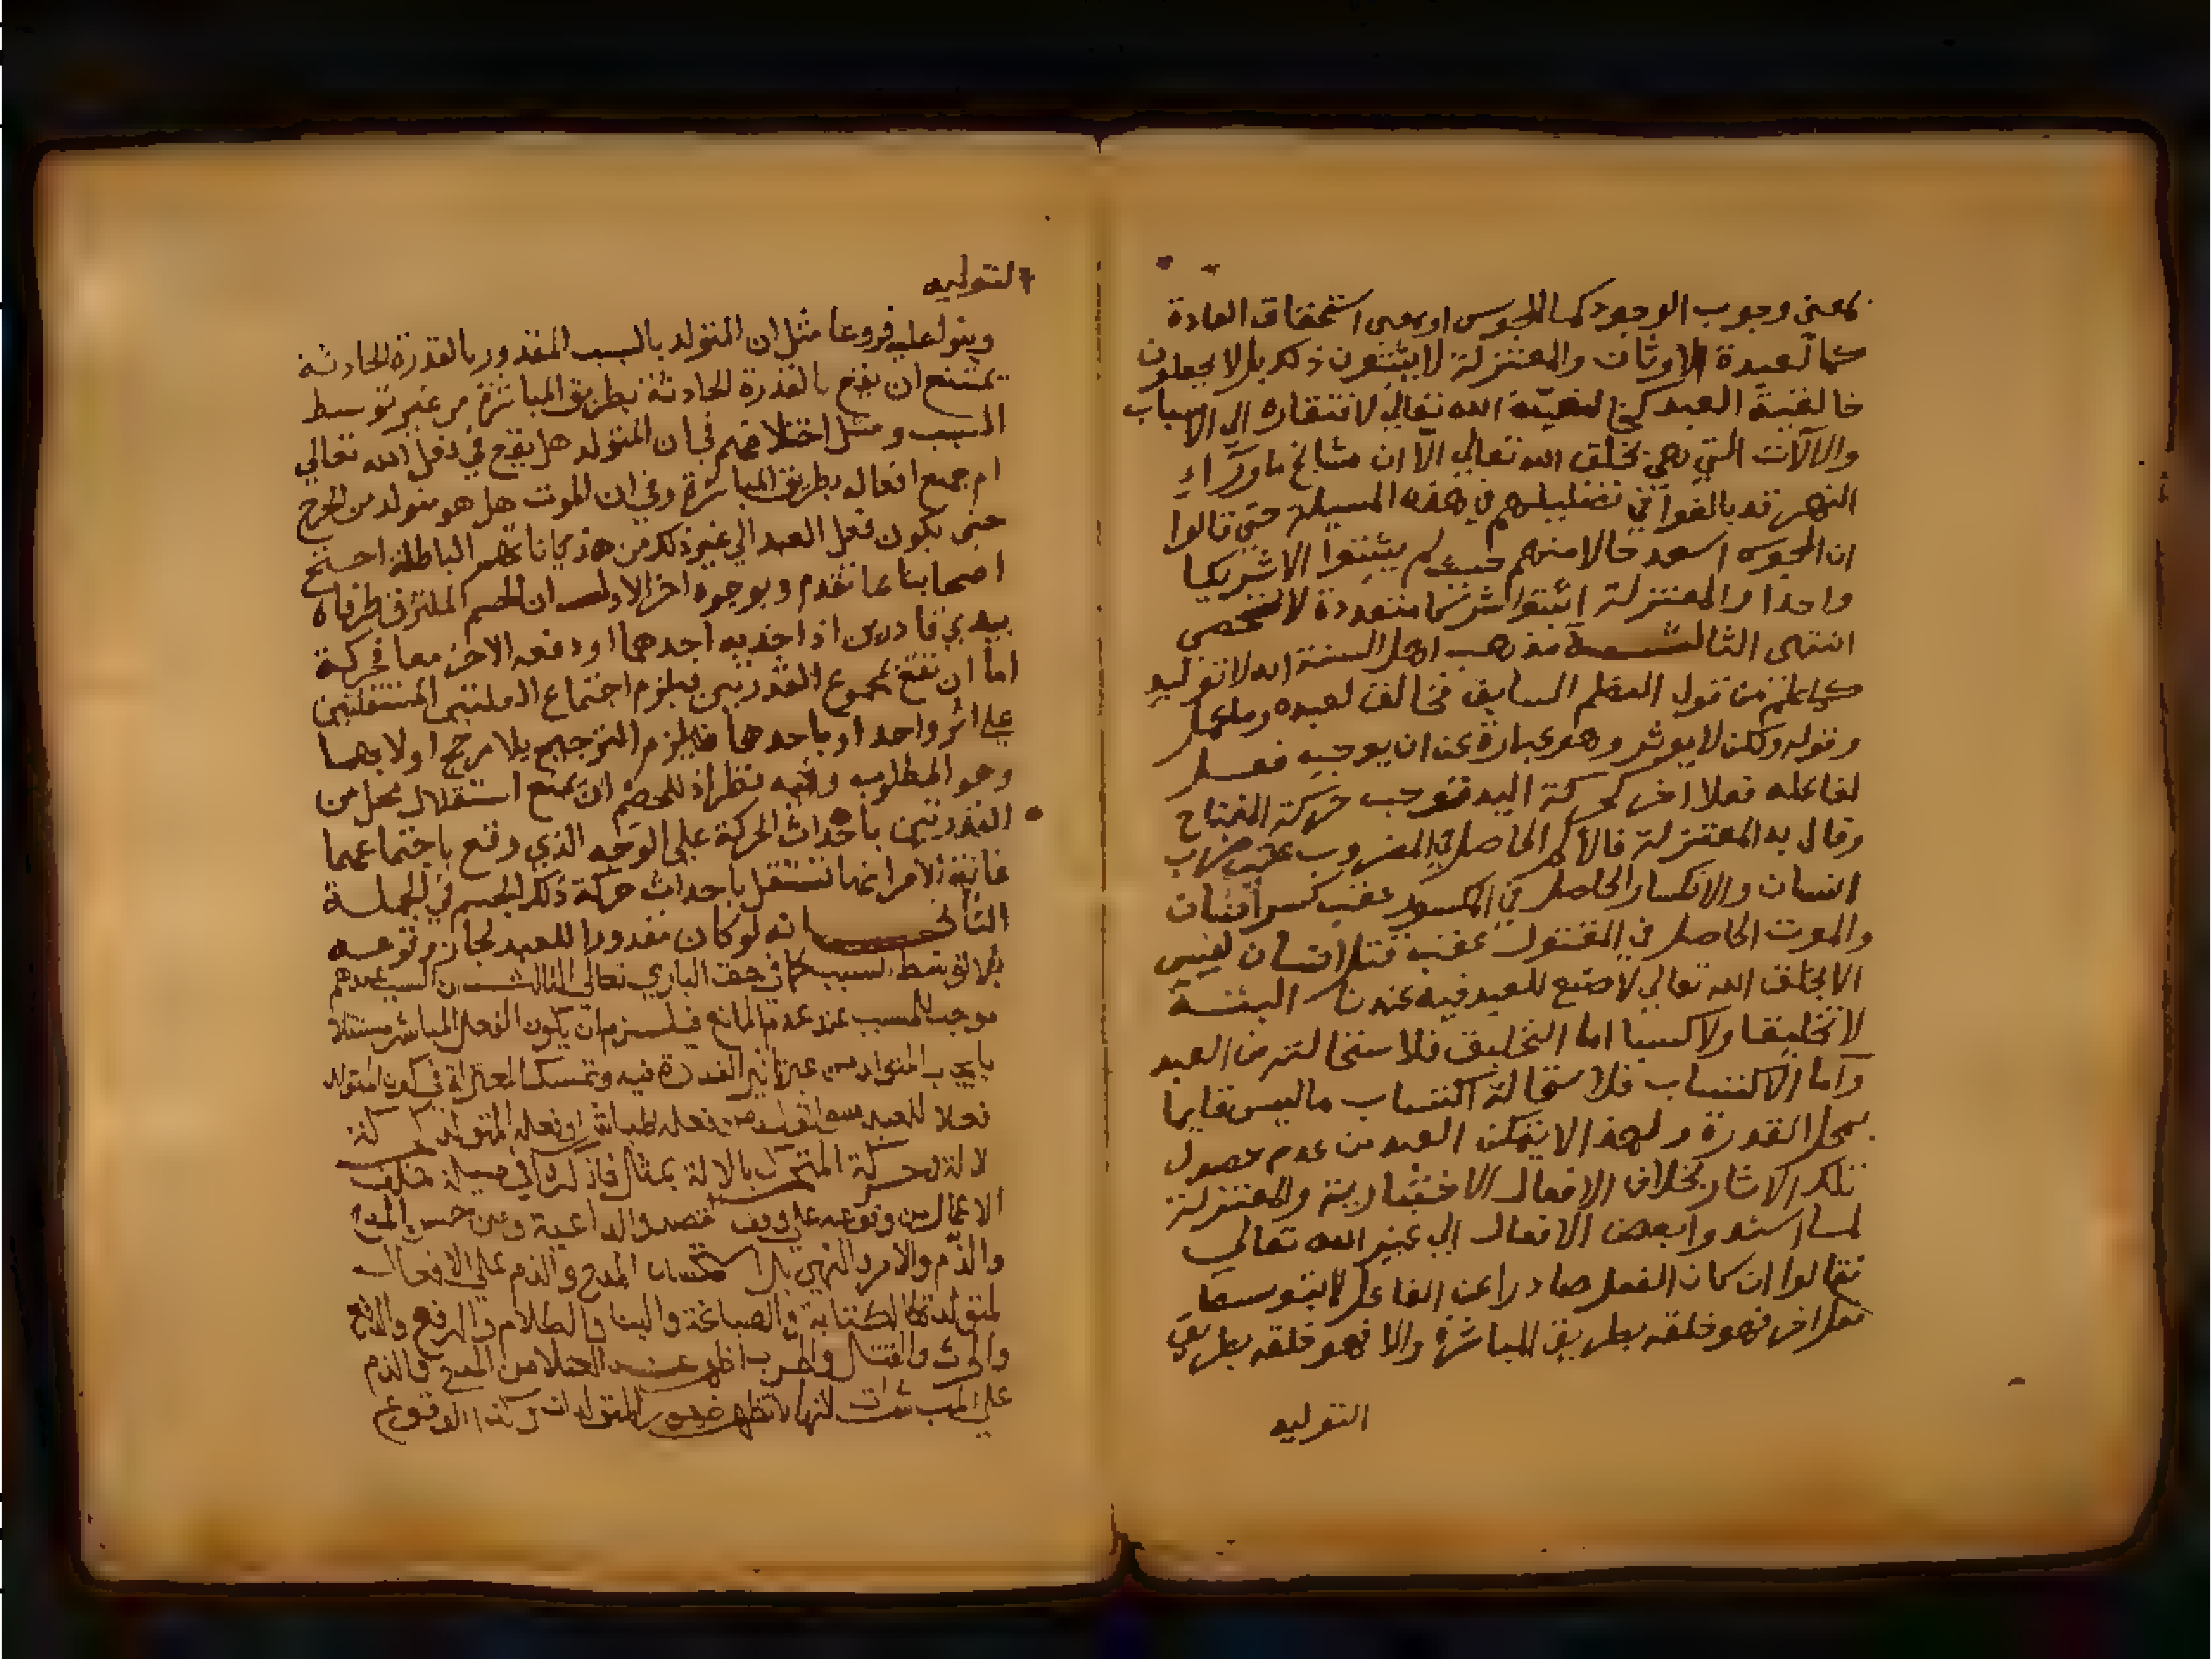 بمعنى وجوب الوجود كما للمجوس او بمعنى استحقاق العبادة
كما لعبدة الاوثان والمعتزلة لا يثبتون ذلك بل لا يجعلون
خالقية العبد كخالقية الله تعالى لافتقاره الى الاسباب
والالآت التي هي بخلق الله تعالى الا ان مشايخ ما وراء
النهر قد بالغوا في تضليلهم في هذه المسيلة حتى قالوا
ان المجوس اسعد حالا منهم حيث لم يثبتوا الا شريكا
واحدا والمعتزلة اثبتوا شركا متعددة لا تحصى
انتهى الثالثة مذهب اهل السنة انه لا توليد
كما علم من قول الناظم السابق فخالق لعبده وما عمل
وقوله ولكن لا يوثر وهو عبارة عن ان يوجب فعل
لفاعله فعلا اخر كحركة اليد فتوجب حركة المفتاح
وقال به المعتزلة فالالم الحاصل في المضروب عقب ضرب
انسان والانكسار الحاصل في المكسور عقب كسر انسان
والموت الحاصل في المقتول عقب قتل انسان ليس
الا بخلق الله تعالى لا صنع للعبد فيه عندنا البتة
لا تخليقا ولا كسبا اما التخليق فلاستحالته من العبد
واما الاكتساب فلاستحالة اكتساب ما ليس قايما
بمحل القدرة ولهذا لا يتمكن العبد من عدم حصول
تلك الاثار بخلاف الافعال الاختيارية والمعتزلة
لما اسندوا بعض الافعال الى غير الله تعالى
فقالوا ان كان الفعل صادرا عن الفاعل لا بتوسط
فعل اخر فهو خلقه بطريق المباشرة والا فهو خلقه بطريق
التوليد
التوليد
وبنوا عليه فروعا مثل ان المتولد بالسبب المقدور بالقدرة الحادثة
يمتنع ان يقع بالقدرة الحادثة بطريق المباشرة من غير توسط
السبب ومثل اختلافهم في ان المتولد هل يقع في فعل الله تعالى
ام جميع افعاله بطريق المباشرة وفي ان الموت هل هو متولد من الجرح
حتى يكون فعل العبد الى غير ذلك من هذياناتهم الباطلة احتج
اصحابنا بما تقدم وبوجوه اخر الاول ان الجسم الملتزق طرفاه
بيدي قادرين اذا جذبه احدهما او دفعه الاخر معا فحركته
اما ان تقع بمجموع القدرتين فيلزم اجتماع العلتين المستقلتين
على اثر واحد او باحدهما فيلزم الترجيح بلا مرجح او لا بهما
وهو المطلوب وفيه نظر اذ للخصم ان يمنع استقلال كل من
القدرتين باحداث الحركة على الوجه الذي وقع باجتماعهما
غاية الامر انها تستقل باحداث حركة ذلك الجسم في الجملة
الثاني انه لو كان مقدورا للعبد لجاز وقوعه
بلا توسط السبب كما في حق الباري تعالى الثالث ان السبب عندهم
موجب للمسبب عند عدم المانع فيلزم ان يكون الفعل المباشر مستقلا
بايجاب المتولد من غير تاثير القدرة فيه وتمسك المعتزلة في كون المتولد
فعلا للعبد
الآلة وحركة المتحرك بالآلة
وقوعه على وفق القصد والداعية وبين حسن المدح
والذم والامر والنهي بل استحسان المدح والذم على الافعال
المتولدة كالكتابة والصياغة والبنا والكلام والرفع والدفع
والقتال والحرب اظهر عند العقلا من المدح والذم
على المباشرات لانها لا تظهر ظهور المتولدات الوقوع